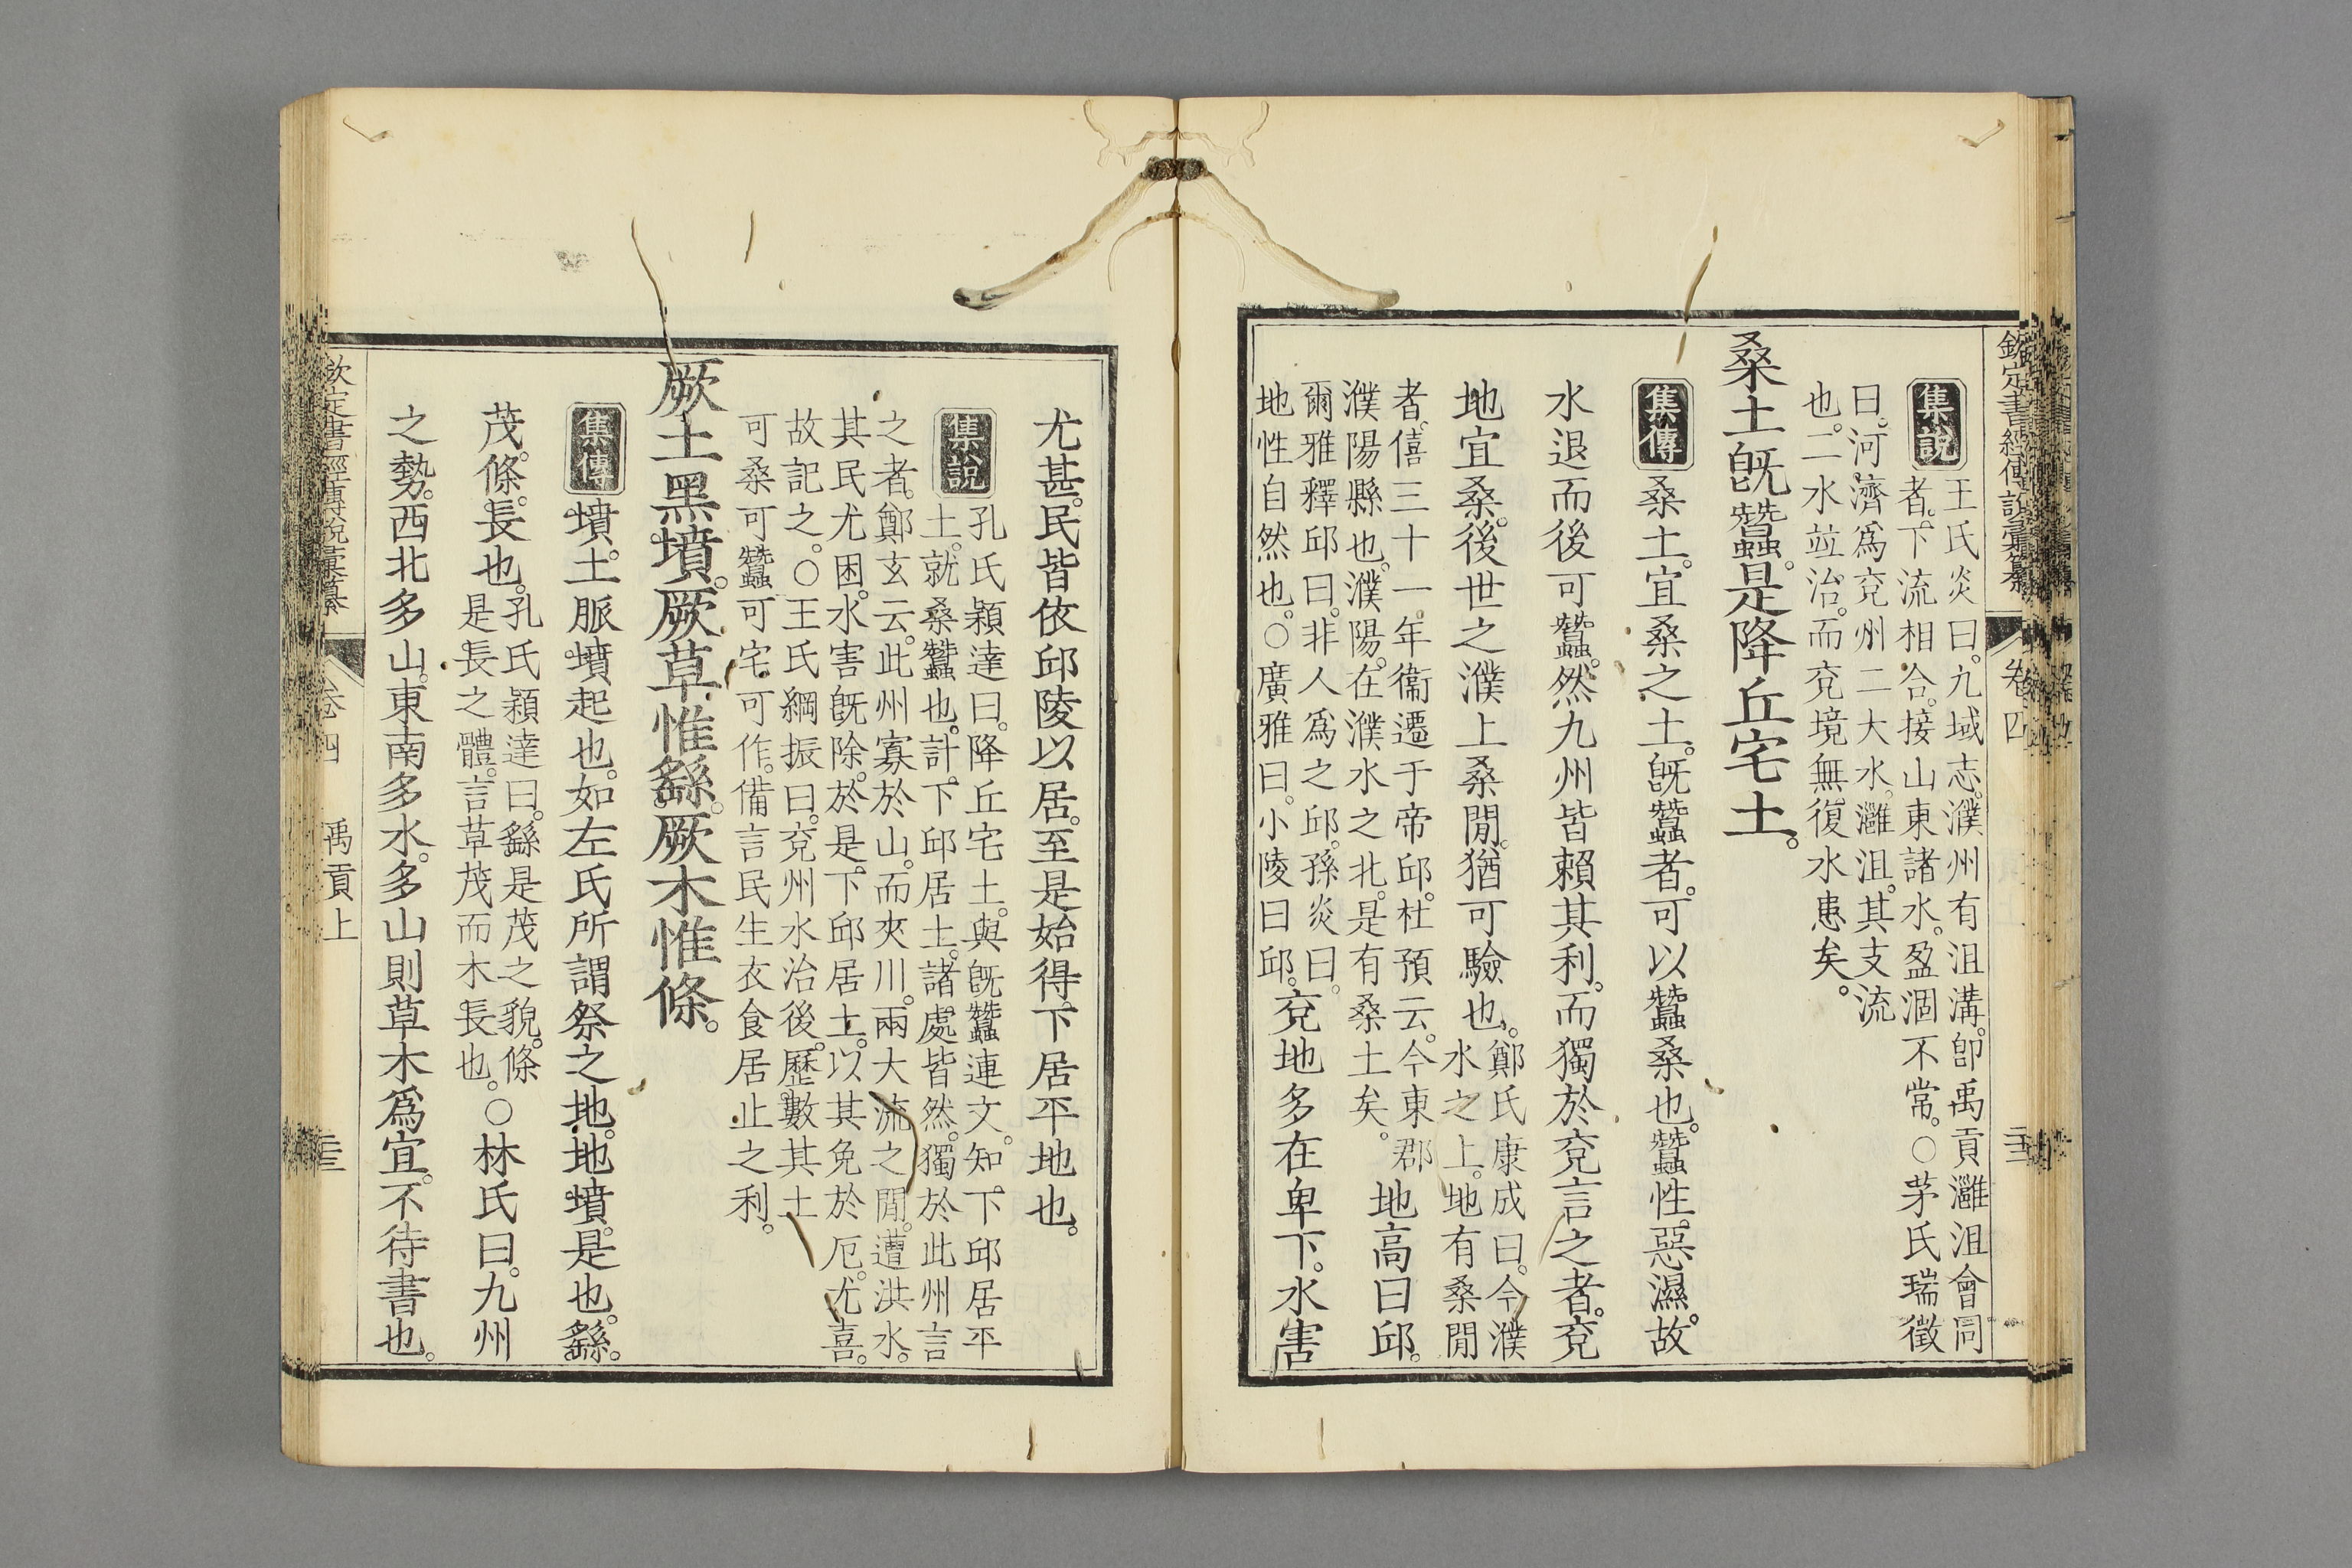 欽定書經傳說彙纂
卷四
集說
王氏炎曰。九域志。濮州有沮溝。卽禹貢灉沮會同
者。下流相合。接山東諸水。盈涸不常。○茅氏瑞徵
曰。河濟爲兗州二大水。灉沮。其支流
也。二水並治。而兗境無復水患矣。
桑土旣蠶。是降丘宅土。
集傳
桑土。宜桑之土。旣蠶者。可以蠶桑也。蠶性惡濕。故
水退而後可蠶。然九州皆賴其利。而獨於兗言之者。兗
地宜桑。後世之濮上桑閒。猶可驗也。
鄭氏康成曰。今濮
水之上。地有桑閒
者。僖三十一年。衞遷于帝邱。杜預云。今東郡
濮陽縣也。濮陽。在濮水之北。是有桑土矣。
地高曰邱。
爾雅釋邱曰。非人爲之邱。孫炎曰。
地性自然也。○廣雅曰。小陵曰邱。
兗地多在卑下。水害
尤甚。民皆依邱陵以居。至是始得下居平地也。
集說
孔氏穎達曰。降丘宅土。與旣蠶連文。知下邱居平
土。就桑蠶也。計下邱居土。諸處皆然。獨於此州言
之者。鄭玄云。此州寡於山。而夾川。兩大流之閒。遭洪水。
其民尤困。水害旣除。於是下邱居土。以其免於厄。尤喜。
故記之。○王氏綱振曰。兗州水治後。歷數其土
可桑可蠶可宅可作。備言民生衣食居止之利。
厥土黑墳。厥草惟繇。厥木惟條。
集傳
墳。土脈墳起也。如左氏所謂祭之地。地墳。是也。繇。
茂。條。長也。
孔氏穎達曰。繇是茂之貌。條
是長之體。言草茂而木長也。
○林氏曰。九州
之勢。西北多山。東南多水。多山則草木爲宜。不待書也。
欽定書經傳說彙纂
卷四
禹貢上